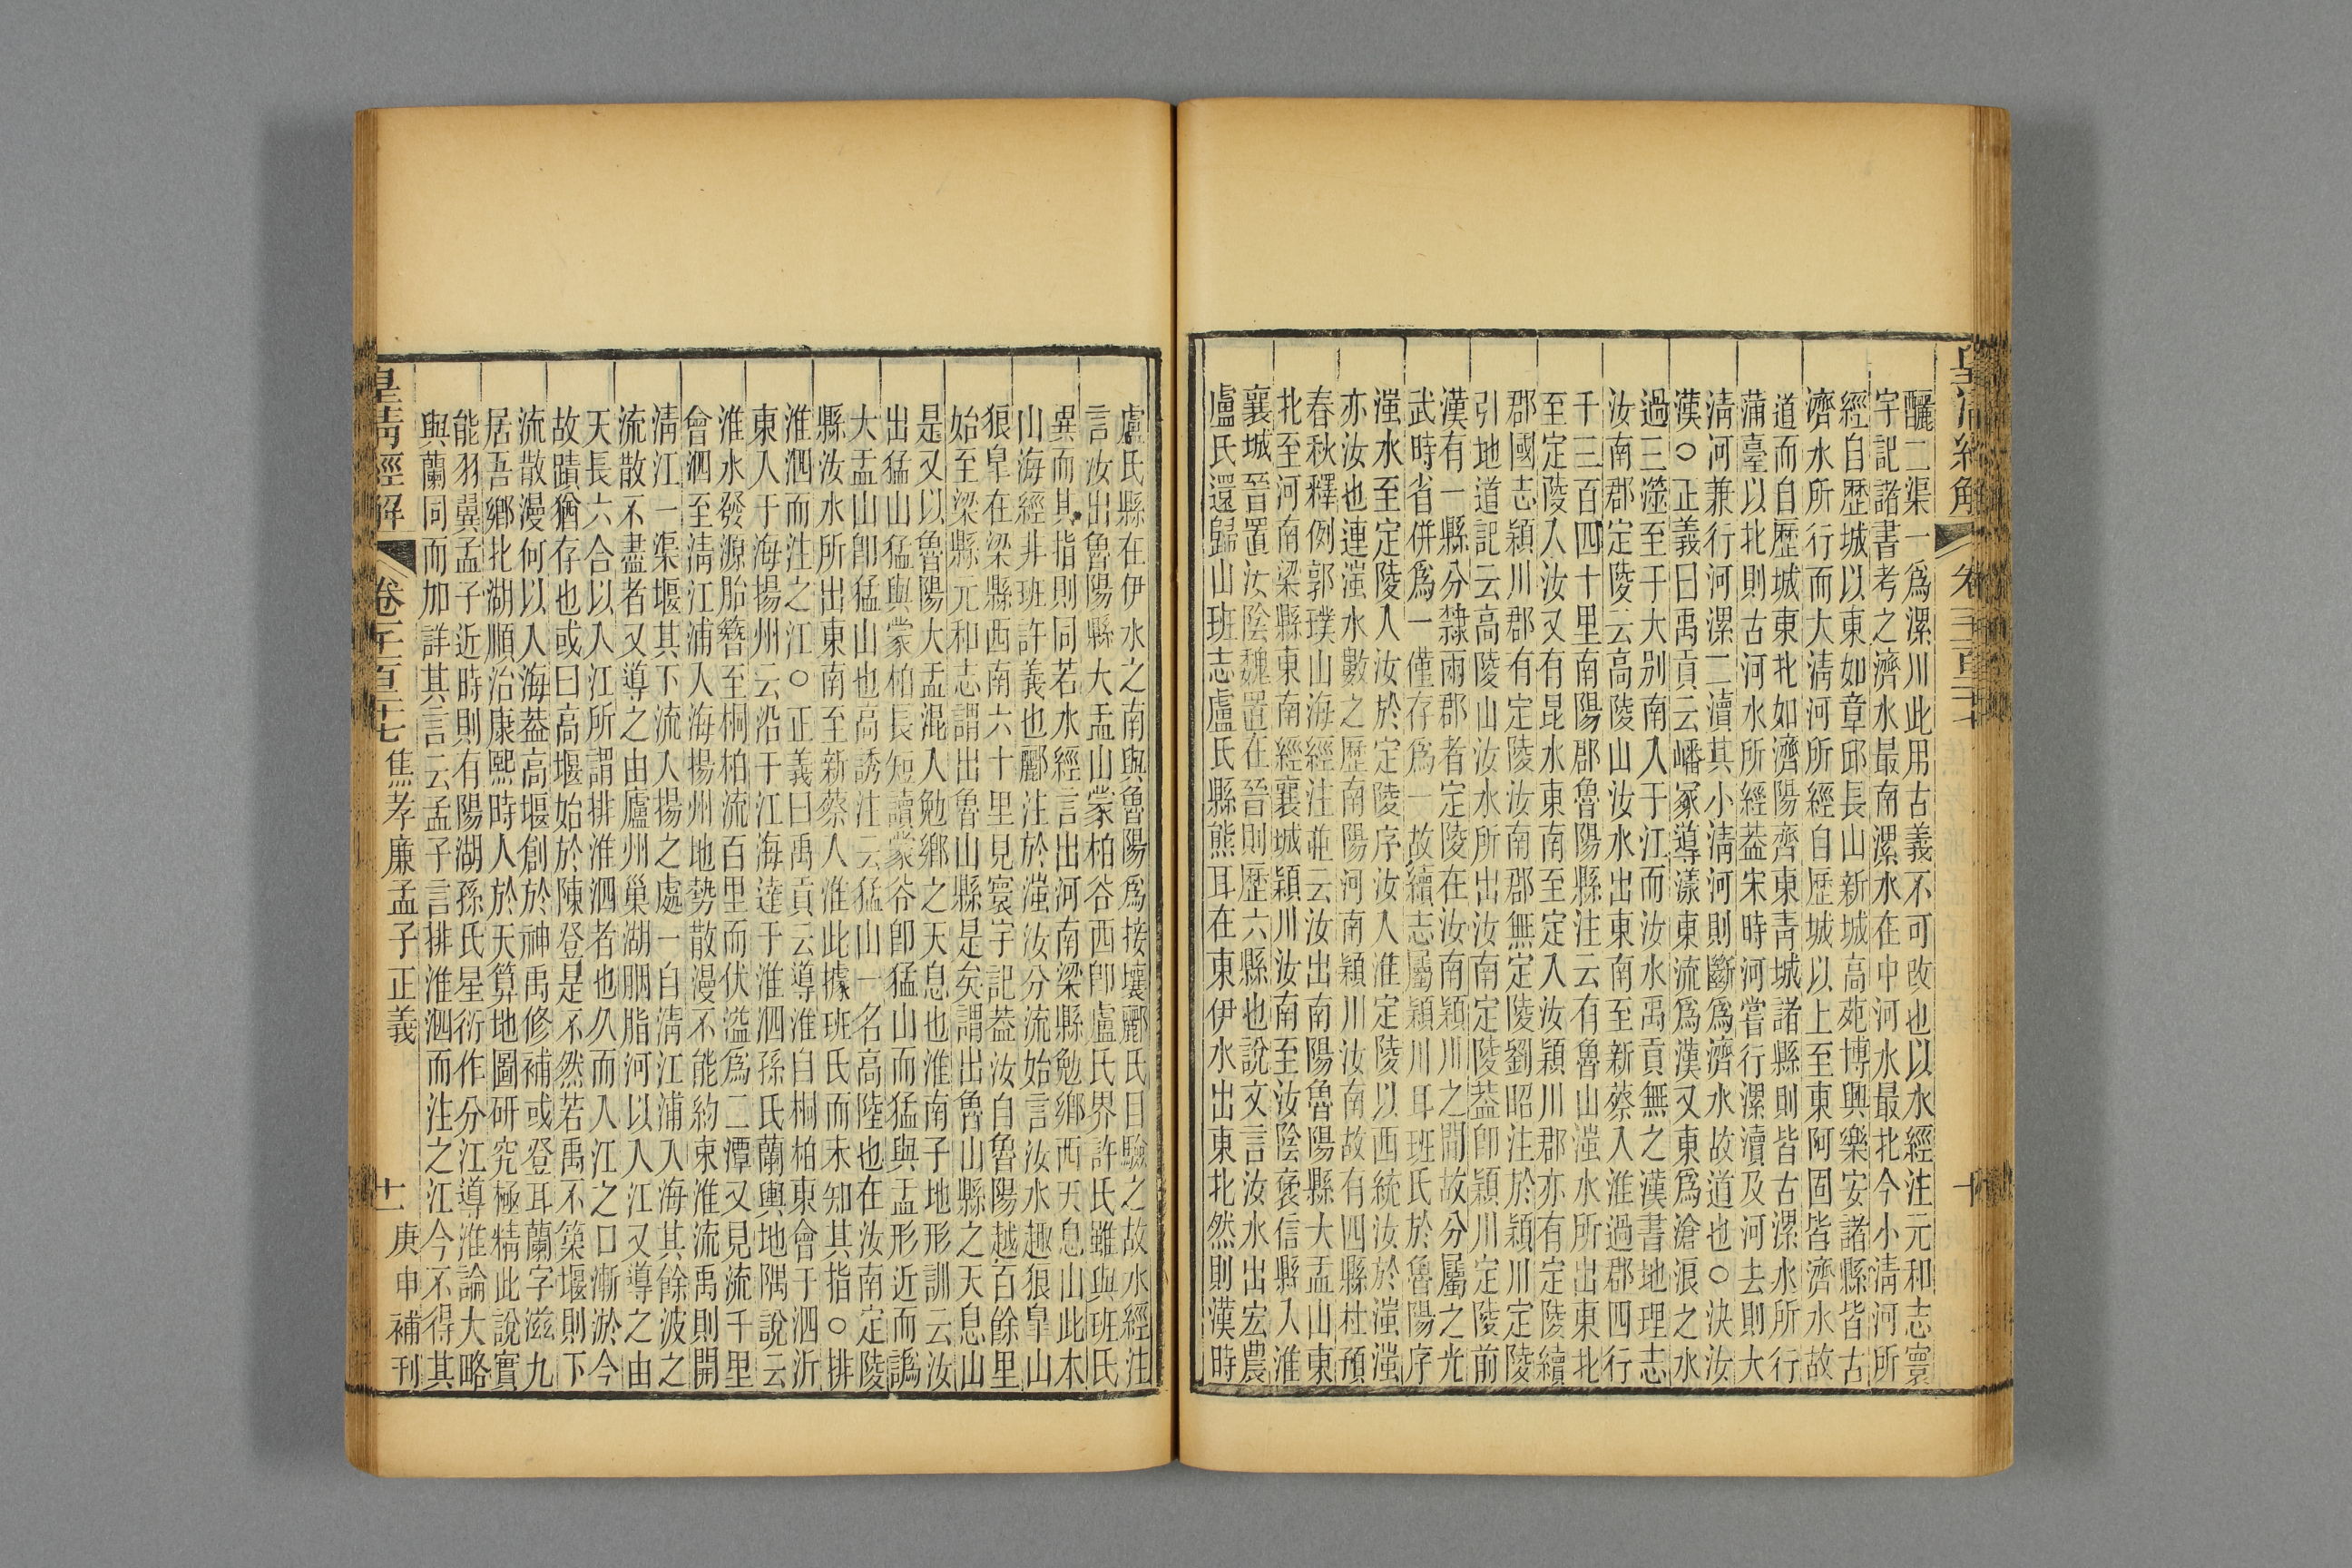 釃二渠一爲漯川此用古義不可改也以水經注元和志寰
宇記諸書考之濟水最南漯水在中河水最北今小淸河所
經自歷城以東如章邱長山新城高苑博興樂安諸縣皆古
濟水所行而大淸河所經自歷城以上至東阿固皆濟水故
道而自歷城東北如濟陽齊東靑城諸縣則皆古漯水所行
蒲臺以北則古河水所經葢宋時河嘗行漯瀆及河去則大
淸河兼行河漯二瀆其小淸河則斷爲濟水故道也○決汝
漢○正義曰禹貢云嶓冢導漾東流爲漢又東爲滄浪之水
過三澨至于大別南入于江而汝水禹貢無之漢書地理志
汝南郡定陵云高陵山汝水出東南至新蔡入淮過郡四行
千三百四十里南陽郡魯陽縣注云有魯山滍水所出東北
至定陵入汝又有昆水東南至定入汝潁川郡亦有定陵續
郡國志潁川郡有定陵汝南郡無定陵劉昭注於潁川定陵
引地道記云高陵山汝水所出汝南定陵葢卽潁川定陵前
漢有一縣分隸兩郡者定陵在汝南潁川之閒故分屬之光
武時省併爲一僅存爲一故續志屬潁川耳班氏於魯陽序
滍水至定陵入汝於定陵序汝入淮定陵以西統汝於滍滍
亦汝也連滍水數之歷南陽河南潁川汝南故有四縣杜預
春秋釋例郭璞山海經注竝云汝出南陽魯陽縣大盂山東
北至河南梁縣東南經襄城潁川汝南至汝陰褒信縣入淮
襄城晉置汝陰魏置在晉則歷六縣也說文言汝水出宏農
盧氏還歸山班志盧氏縣熊耳在東伊水出東北然則漢時
皇淸經解
十
盧氏縣在伊水之南與魯陽爲接壤酈氏目驗之故水經注
言汝出魯陽縣大盂山蒙柏谷西卽盧氏界許氏雖與班氏
異而其指則同若水經言出河南梁縣勉鄉西天息山此本
山海經幷班許義也酈注於滍汝分流始言汝水趣狼皐山
狼皐在梁縣西南六十里見寰宇記葢汝自魯陽越百餘里
始至梁縣元和志謂出魯山縣是矣謂出魯山縣之天息山
是又以魯陽大盂混入勉鄉之天息也淮南子地形訓云汝
出猛山猛與蒙柏長短讀蒙谷卽猛山而猛與盂形近而譌
大盂山卽猛山也高誘注云猛山一名高陸也在汝南定陵
縣汝水所出東南至新蔡入淮此據班氏而未知其指○排
淮泗而注之江○正義曰禹貢云導淮自桐柏東會于泗沂
東入于海揚州云沿于江海達于淮泗孫氏蘭輿地隅說云
淮水發源胎簪至桐柏流百里而伏溢爲二潭又見流千里
會泗至淸江浦入海揚州地勢散漫不能約束淮流禹則開
淸江一渠堰其下流入揚之處一自淸江浦入海其餘波之
流散不盡者又導之由廬州巢湖胭脂河以入江又導之由
天長六合以入江所謂排淮泗者也久而入江之口漸淤今
故蹟猶存也或曰高堰始於陳登是不然若禹不築堰則下
流散漫何以入海葢高堰創於神禹修補或登耳蘭字滋九
居吾鄉北湖順治康熙時人於天算地圖硏究極精此說實
能羽翼孟子近時則有陽湖孫氏星衍作分江導淮論大略
與蘭同而加詳其言云孟子言排淮泗而注之江今不得其
皇淸經解 卷千一百三十七 焦孝廉孟子正義 十一 庚申補刊